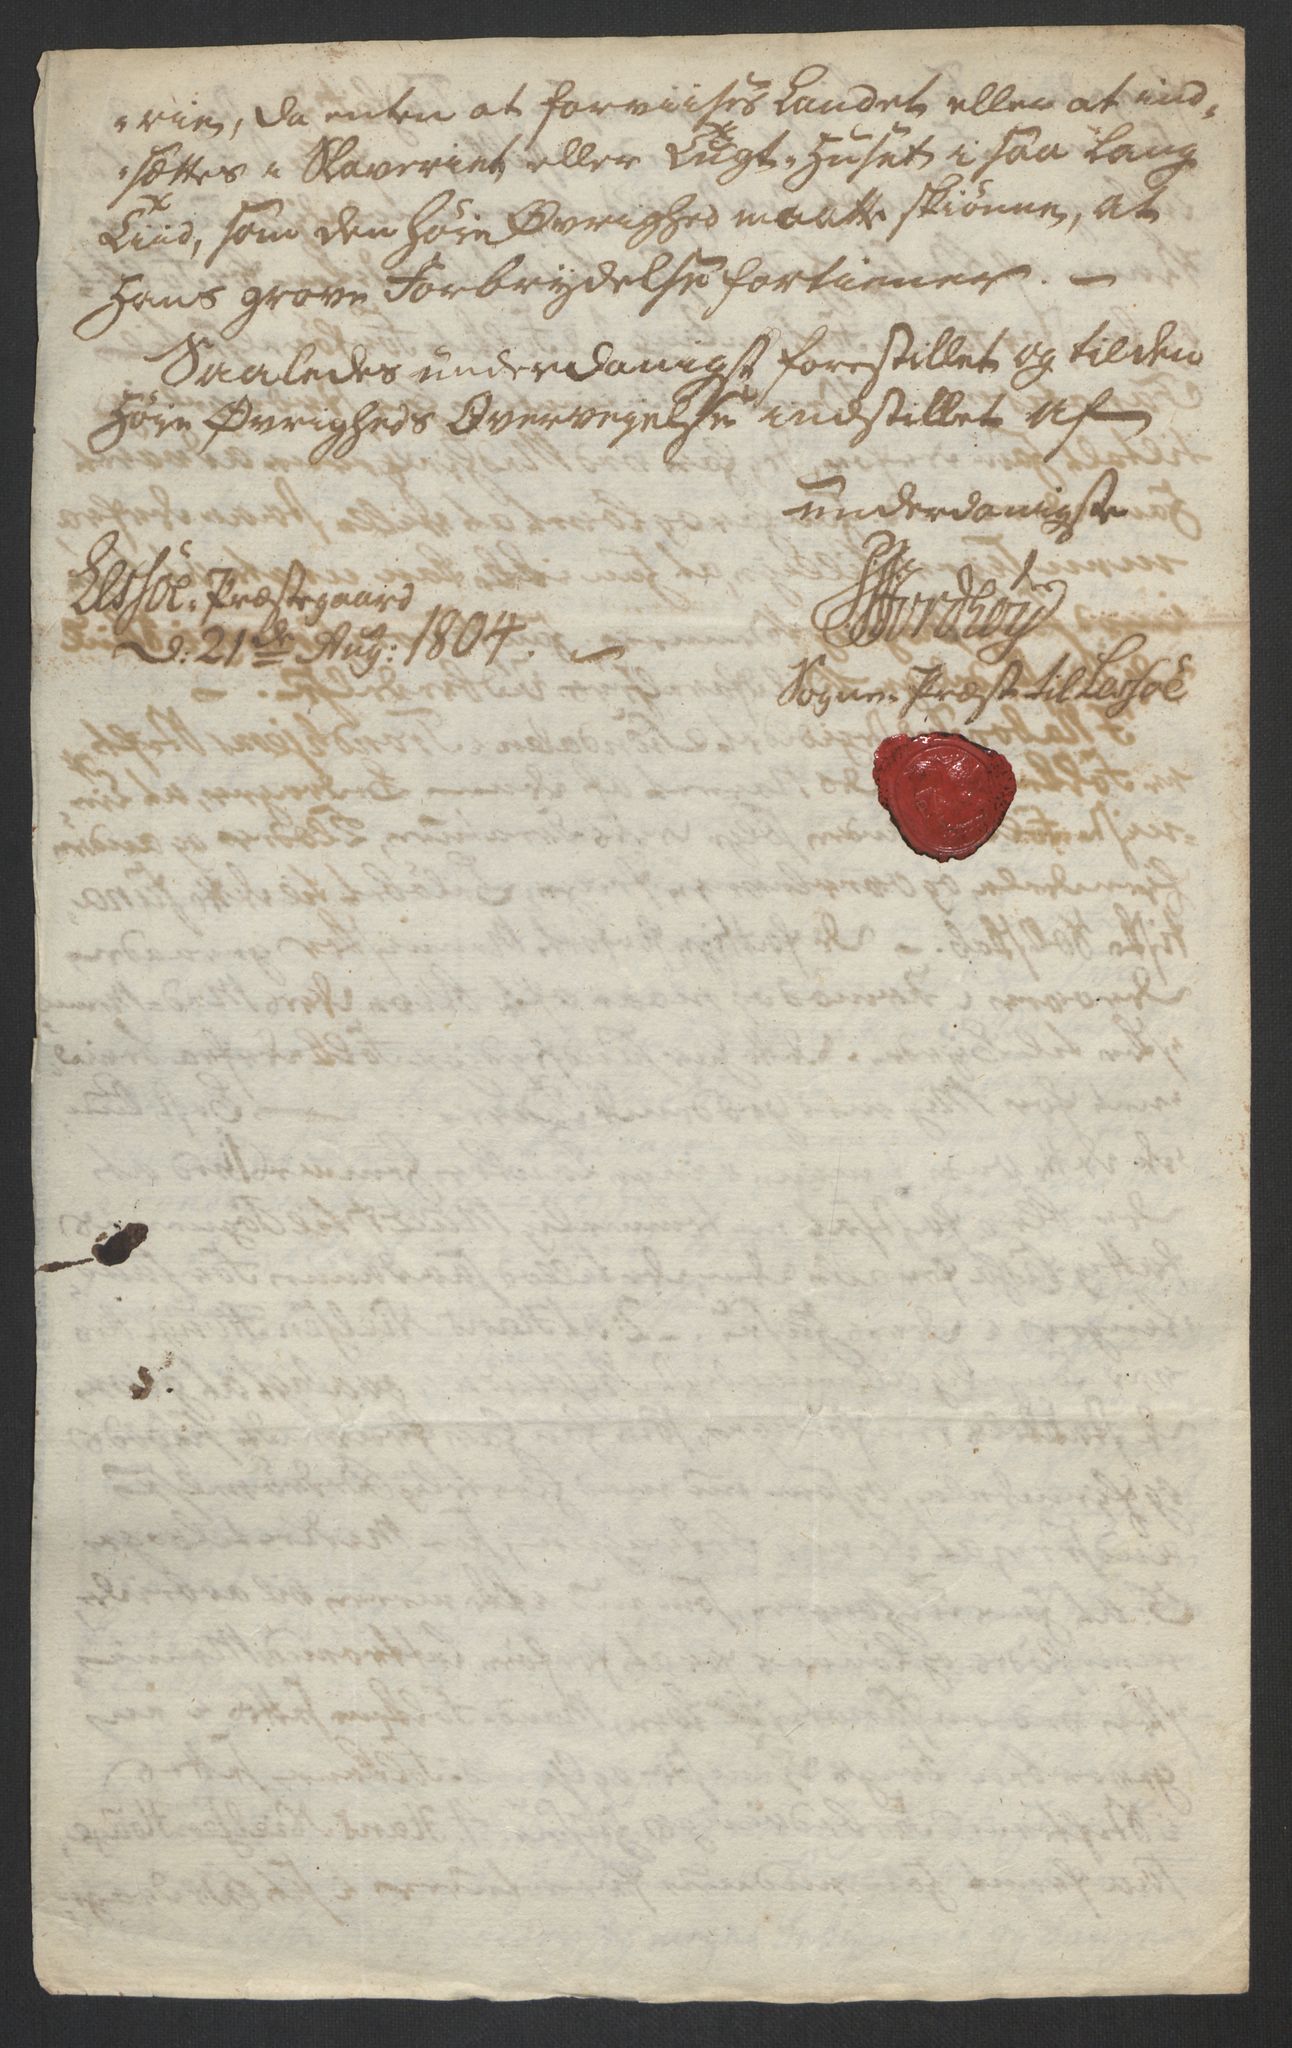 -rie, da enten at forviises Landet eller at ind-
-sættes i Slaveriet eller Tugt-Huset i saa lang
Tiid, som den høie Øvrighed maatte skiønne, at
Hans grove Forbrydelse fortiener. —
Saaledes underdanigst forestillet og til den
Høie Øvrigheds Overveielse indstillet af
underdanigste
Lessøe-Præstegaard
d: 21de Aug: 1804. —
Sogne-Præst til Lessøe